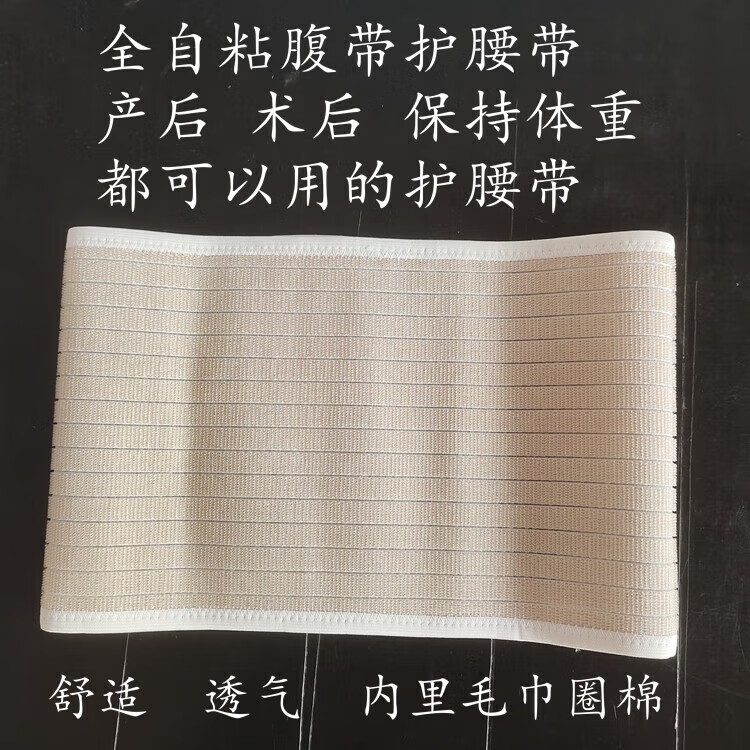 全自粘腹带护腰带
产后 术后 保持体重
都可以用的护腰带
舒适 透气 内里毛巾圈棉